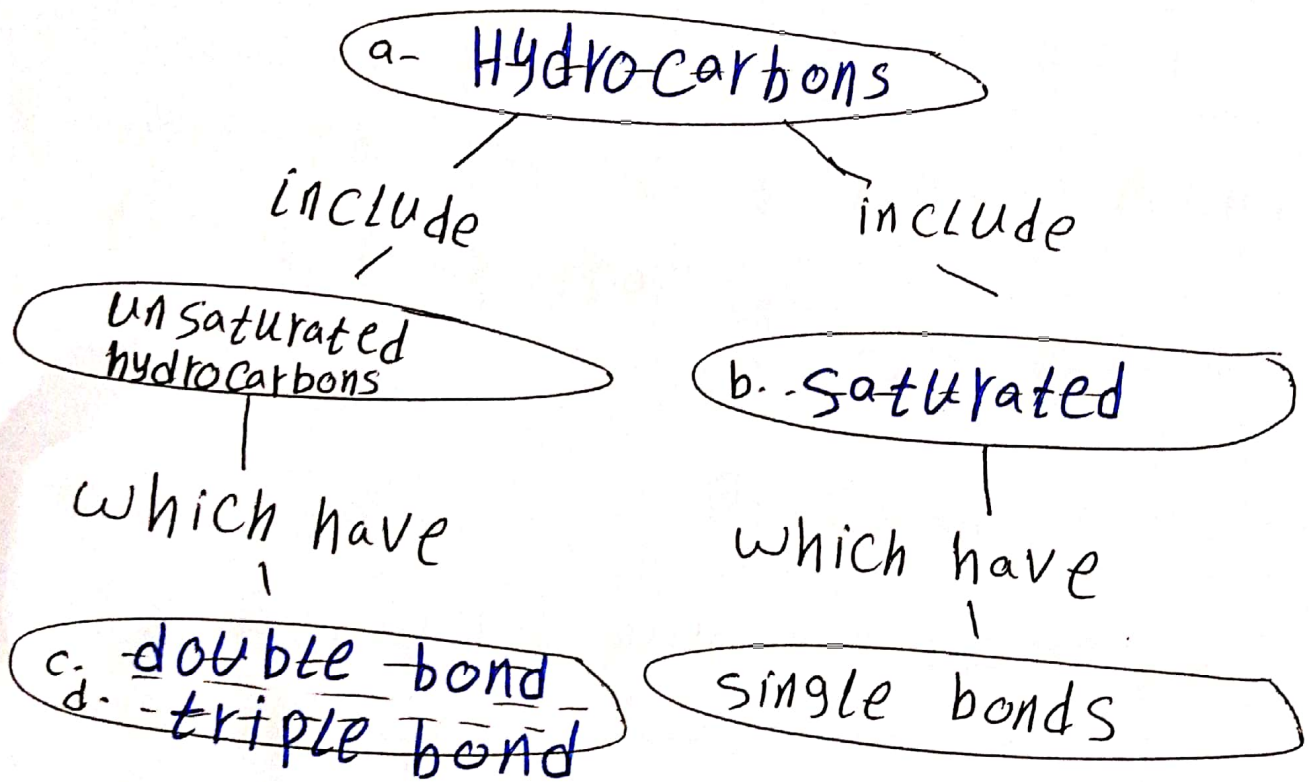 a- Hydrocarbons
include
include
unsaturated
hydrocarbons
b. saturated
which have
which have
c. double bond
d. triple bond
single bonds